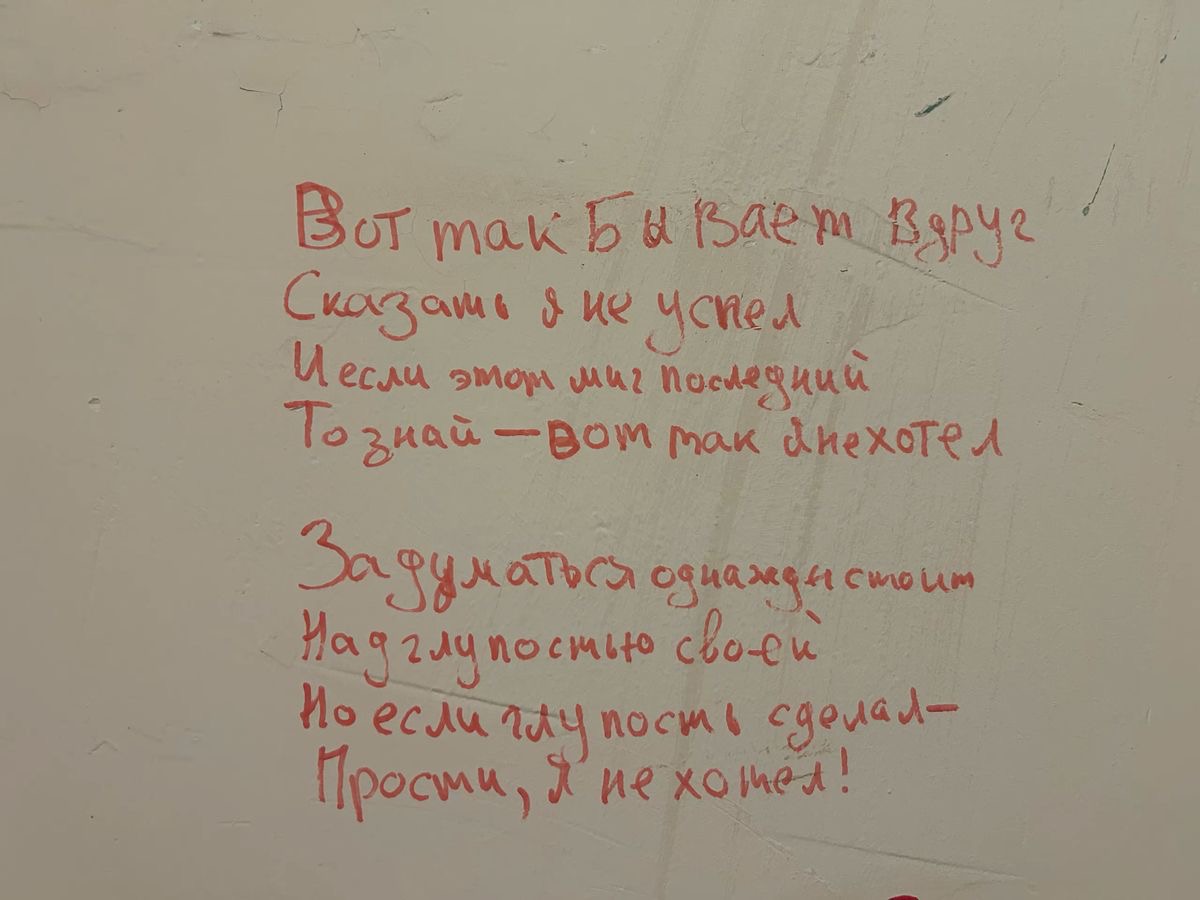 Вот так Бывает вдруг
Сказать я не успел
И если этот миг последний
То знай — вот так я не хотел
Задуматься однажды стоит
Над глупостью своей
Но если глупость сделал —
Прости, я не хотел!